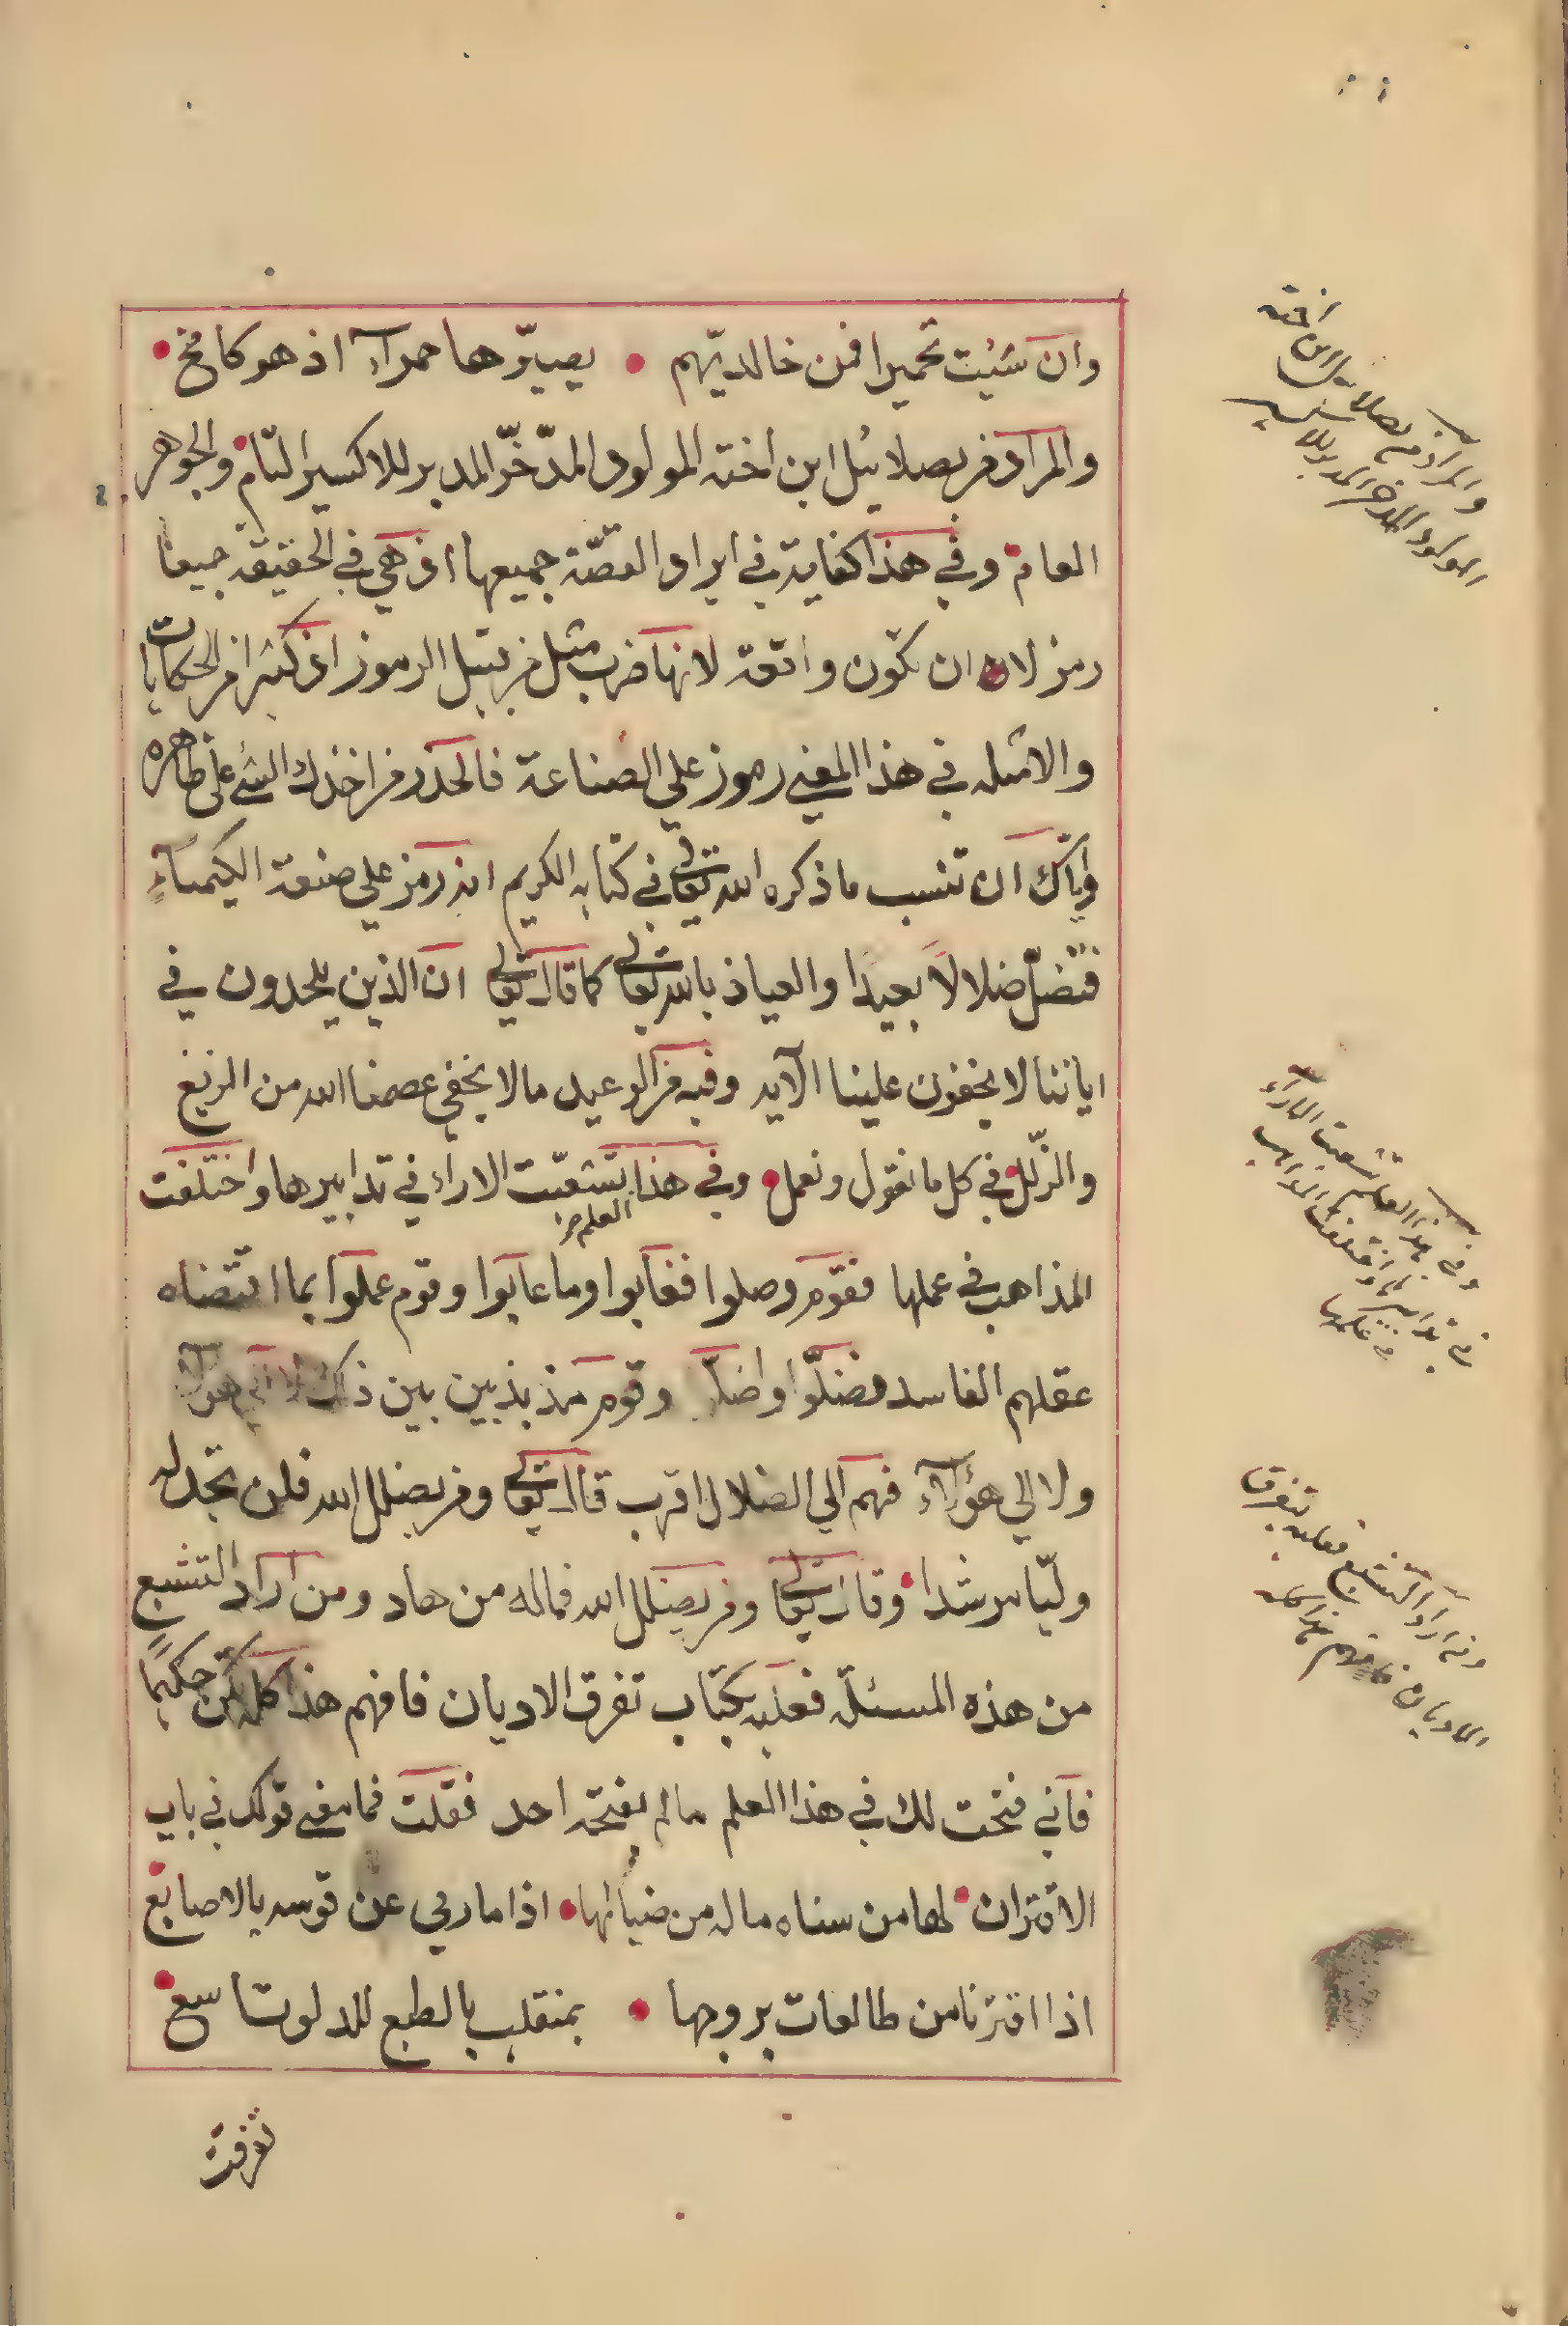 وان شئت تحميرا فمن خالديّهم • يصيّرها حمرآء اذ هو كامخ •
والمراد من بصلائيل ابن اخته المولود المدّخّر المدبر للاكسير التام والجوهر
العام وفي هذا كفاية في ايراد القصّة جميعها اذ هي في الحقيقة جميعا
رمز لا ان تكون واقعة لانها ضرب مثل من قبيل الرموز اذ كثيرا من الحكايات
والامثله في هذا المعني رموز علي الصناعة فالحذر من اخذك الشئ علي ظاهره
واياك ان تنسب ما ذكره الله تعالي في كتابه الكريم انه رمز علي صنعة الكيمياء
فتضلّ ضلالاً بعيدًا والعياذ بالله تعالي كما قال تعالي ان الذين يلحدون في
اياتنا لا يخفون علينا الآيه وفيه من الوعيد ما لا يخفي عصمنا الله من الزيغ
والزّلل في كل ما نقول ونعمل • وفي هذا العلم تشعّبت الاراء في تدابيرها واختلفت
المذاهب في عملها فقوم وصلوا فغابوا وما عابوا وقوم عملوا بما اقتضاه
عقلهم الفاسد فضلّوا واضلّوا وقوم مذبذبين بين ذلك لا الي هؤلآء
ولا الي هؤلآء فهم الي الضلال اقرب قال تعالي ومن يضلل الله فلن تجد له
وليّا مرشدا • وقال تعالي ومن يضلل الله فماله من هاد ومن اراد التشبع
من هذه المسئلة فعليه بكتاب تفرق الاديان فافهم هذا كله تكن حكيمًا
فاني فتحت لك في هذا العلم ما لم يفتحه احد فقلت فما معني قولك في باب
الاقتران • لها من سناه ماله من ضيائها • اذا ما رمي عن قوسه بالاصابع •
اذا اقترنا من طالعات بروجها • بمنقلب بالطبع للدلو تاسع •
والمراد من بصلائيل ابن اخته
المولود المدخر المدبر للاكسير
وفي هذا العلم تشعبت الاراء
في تدابيرها واختلفت المذاهب
في عملها
ومن اراد التشبع فعليه بتفرق
الاديان فافهم هذا كله